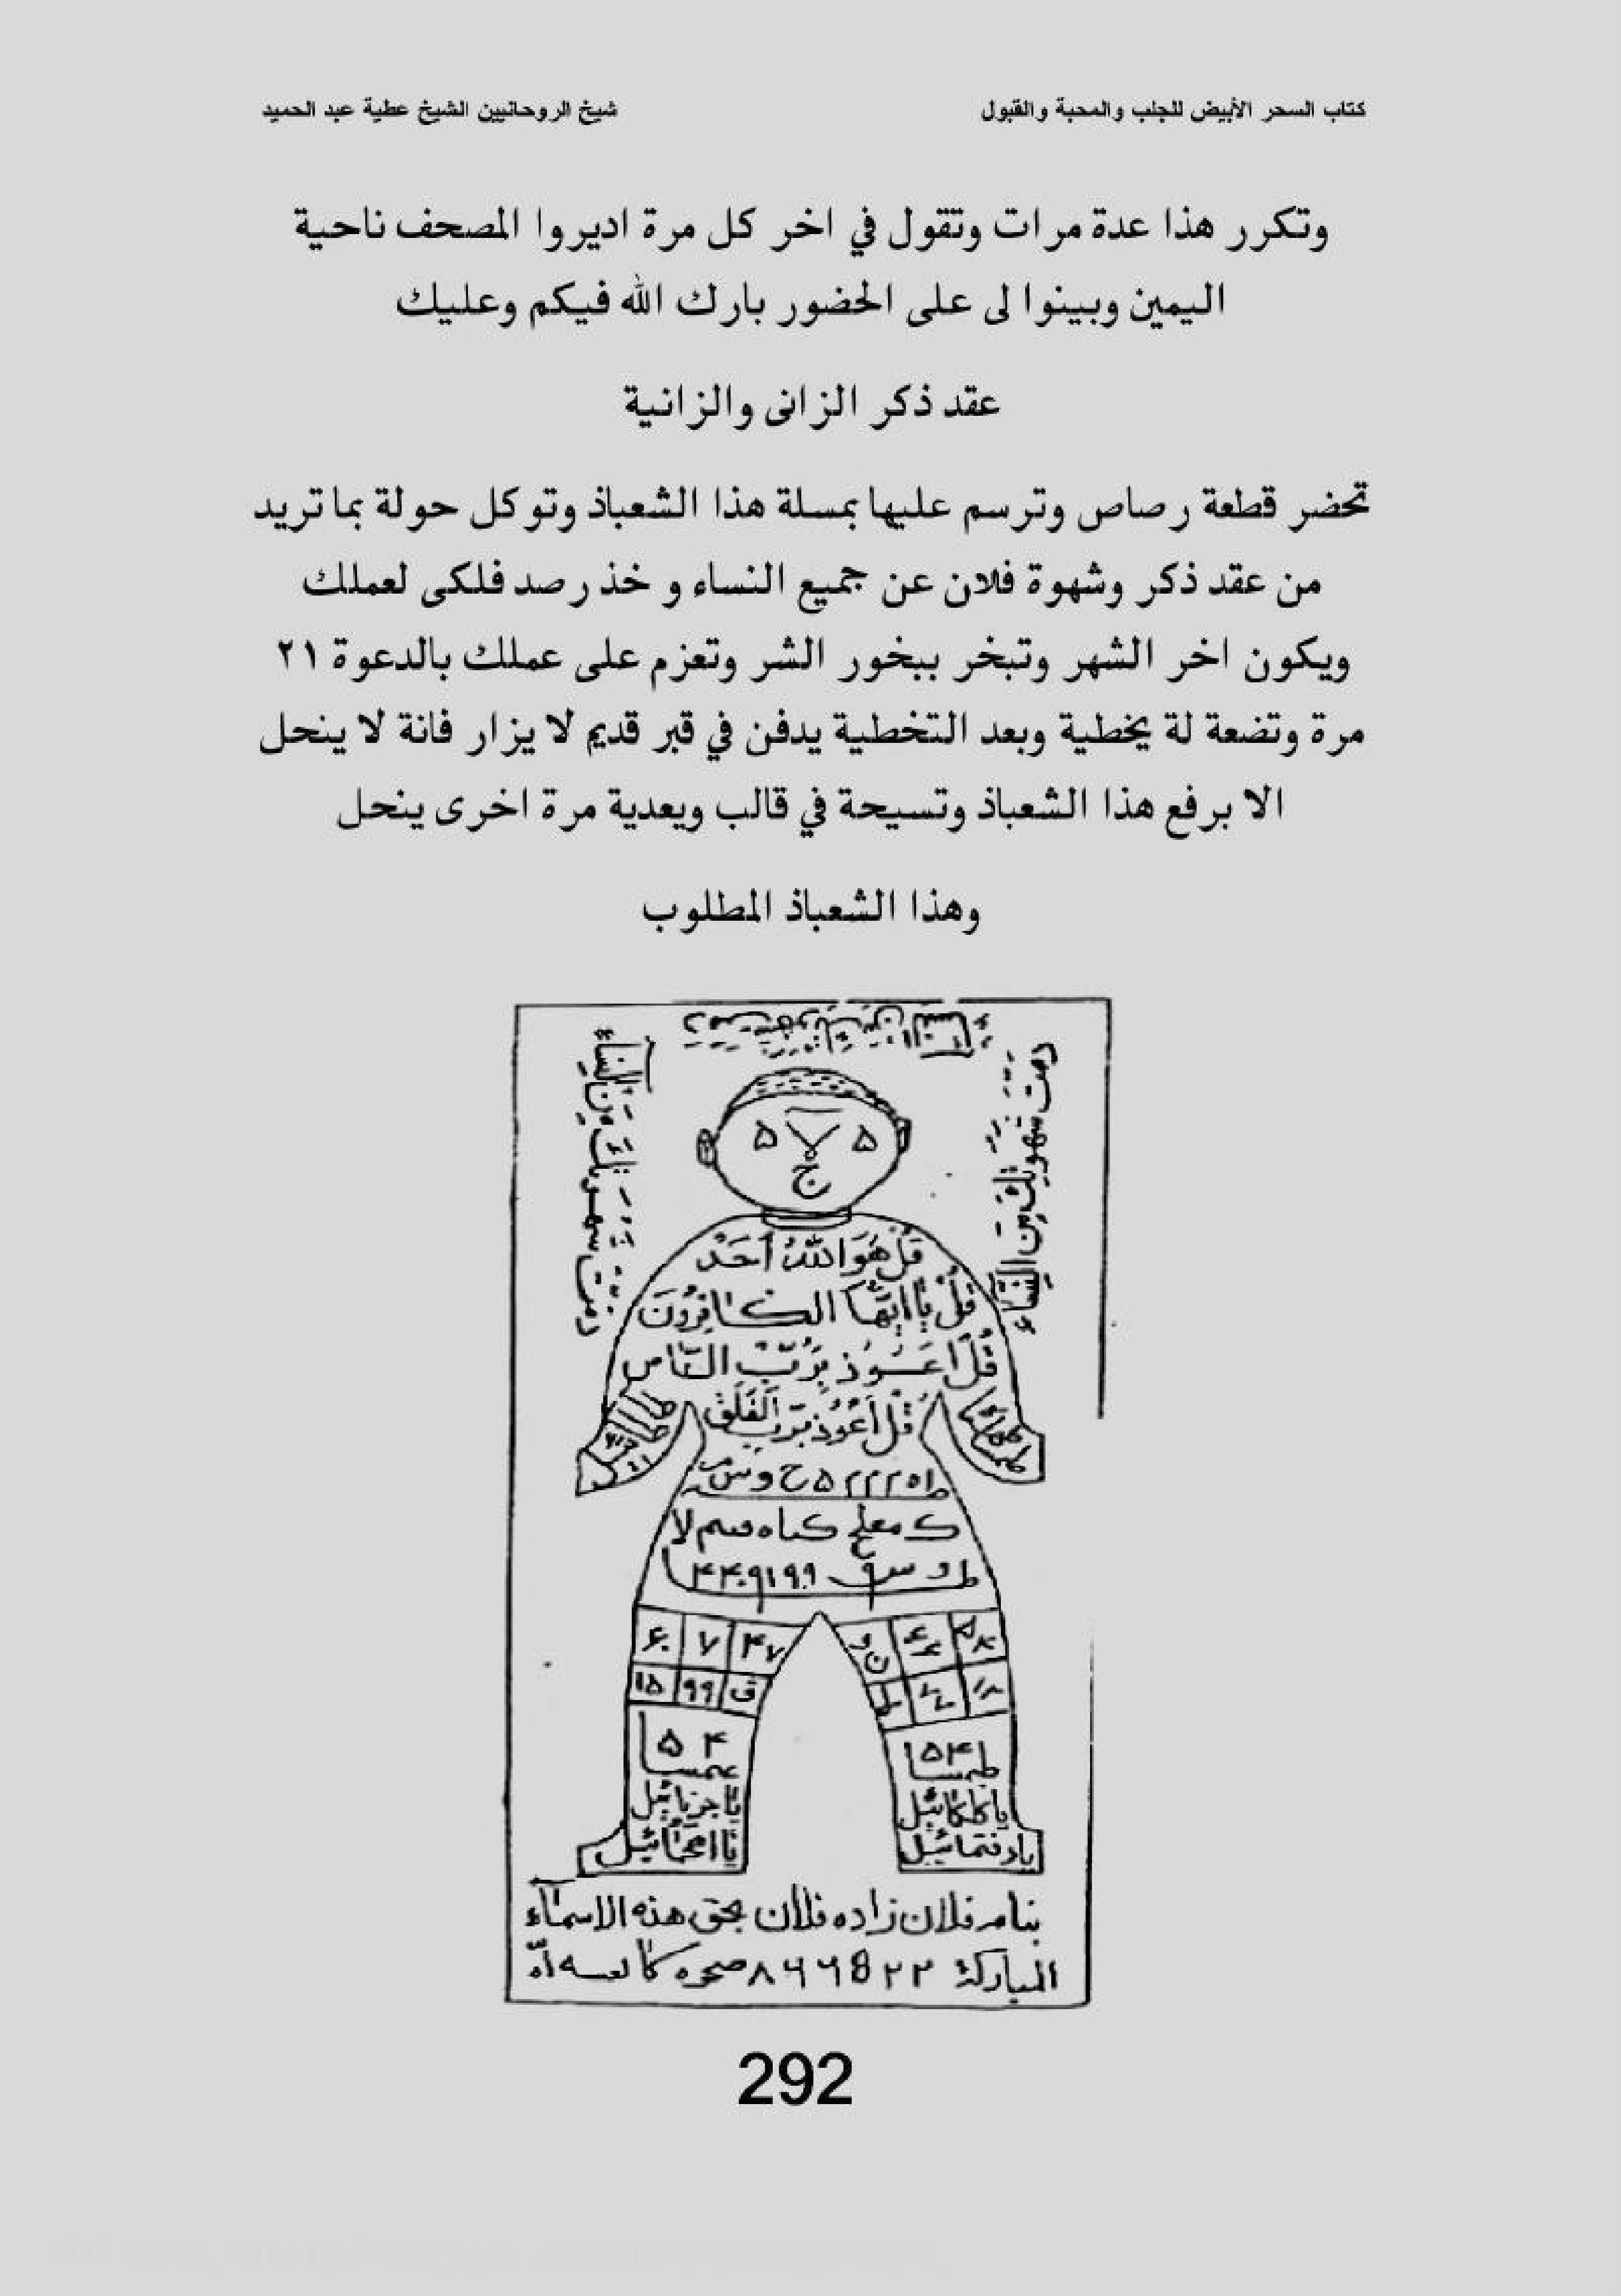 كتاب السحر الأبيض للجلب والمحبة والقبول
شيخ الروحانيين الشيخ عطية عبد الحميد
وتكرر هذا عدة مرات وتقول في اخر كل مرة اديروا المصحف ناحية
اليمين وبينوا لى على الحضور بارك الله فيكم وعليك
عقد ذكر الزانى والزانية
تحضر قطعة رصاص وترسم عليها بمسلة هذا الشعباذ وتوكل حولة بما تريد
من عقد ذكر وشهوة فلان عن جميع النساء و خذ رصد فلكى لعملك
ويكون اخر الشهر وتبخر ببخور الشر وتعزم على عملك بالدعوة ٢١
مرة وتضعة لة يخطية وبعد التخطية يدفن في قبر قديم لا يزار فانة لا ينحل
الا برفع هذا الشعباذ وتسيحة في قالب ويعدية مرة اخرى ينحل
وهذا الشعباذ المطلوب
قُلْ هُوَ اللّٰهُ أَحَدْ
قُلْ يَا اَيُّهَا الكَافِرُونَ
قُلْ اَعُوذُ بِرَبِّ النَّاس
قُلْ أَعُوذُ بِرَبِّ الْفَلَقْ
۶۰ ۷ ۴۷
۱۵ ۹۹ ق
۵ ۴
۵۴
بنام فلان زاده فلان بحق هذه الاسماء
المباركة
292